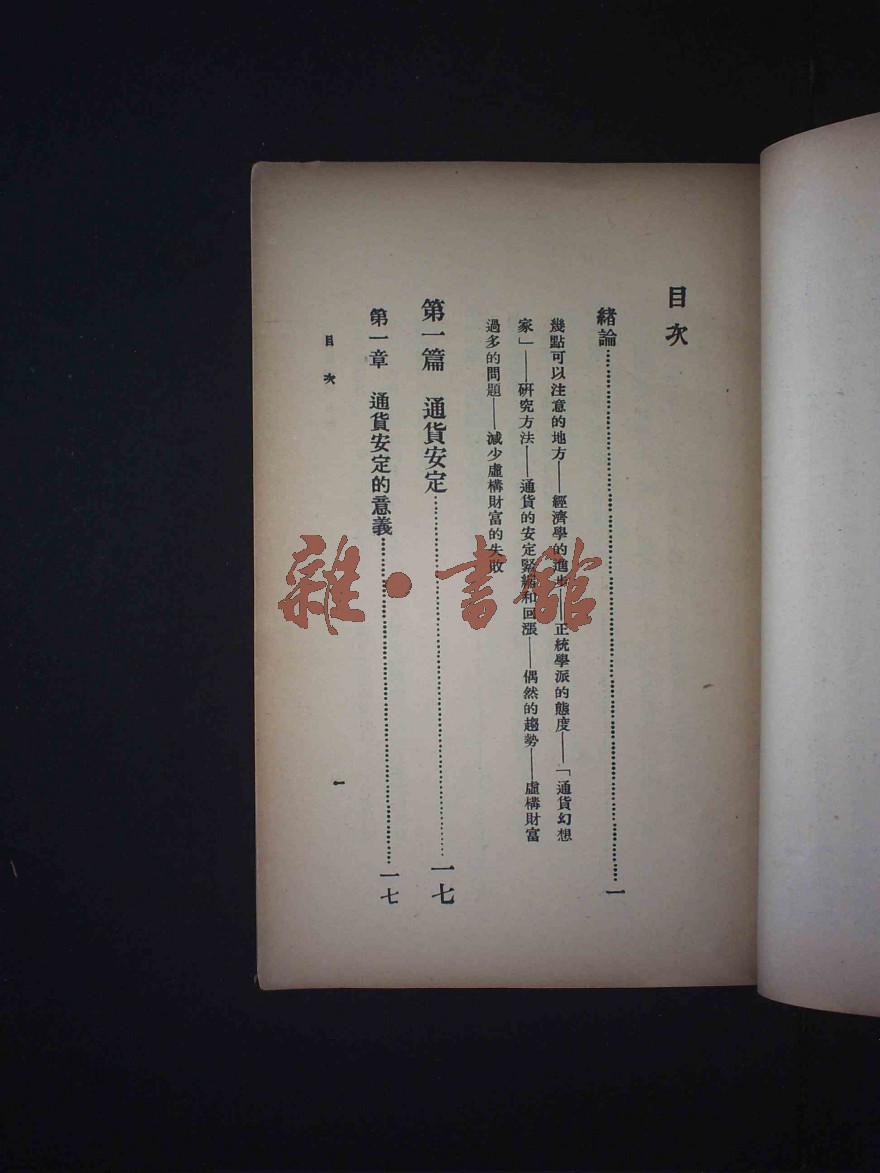 目次
緒論……………一
幾點可以注意的地方——經濟學的進步——正統學派的態度——「通貨幻想
家」——研究方法——通貨的安定緊縮和回漲——偶然的趨勢——虛構財富
過多的問題——減少虛構財富的失敗
第一篇　通貨安定……………一七
第一章　通貨安定的意義……………一七
目次
一
雜·書館